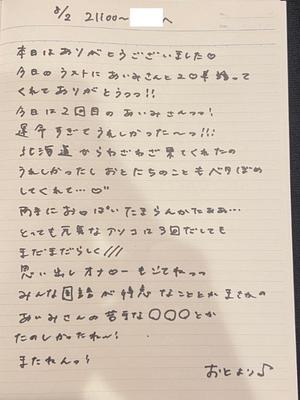 8/2 21:00〜 へ
本日はありがとうございました♡
今日のラストにあいみさんと20年語って
くれてありがとうっっ!!
今日は2回目のあいみさんっっ!
運命すぎてうれしかった〜っ!!!
北海道からわざわざ来てくれたの
うれしかったしおとたちのこともベタぼめ
してくれて…♡
両手におっぱいたまらんかたぁぁ…
とっても元気なアソコは3回だしても
まだまだらしく///
思い出しオナローもしてねっっ
みんな国語が得意なこととかまさかの
あいみさんの苦手な〇〇〇とか
たのしかったね〜!
またねんっ!
おとより♪